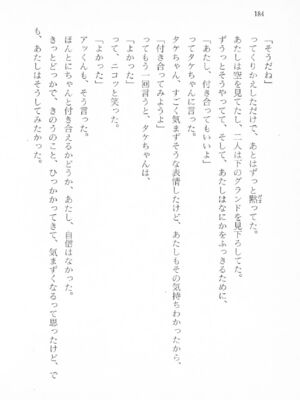 184
「そうだね」
ってくりかえしただけで、あとはずっと黙ってた。
あたしは空を見てたし、二人は下のグランドを見下ろしてた。
ずうっとそうやってて、そして、あたしはなにかをふっきるために、
「あたし、付き合ってもいいよ」
ってタケちゃんに言った。
「付き合ってみようよ」
タケちゃん、すごく気まずそうな表情したけど、あたしもその気持ちわかったから、
ってもう一回言うと、タケちゃんは、
「よかった」
って、ニコッと笑った。
「よかった」
アッくんも、そう言った。
ほんとにちゃんと付き合えるかどうか、あたし、自信はなかった。
きっとどっかで、きのうのこと、ひっかかってきて、気まずくなるって思ったけど、で
も、あたしはそうしてみたかった。